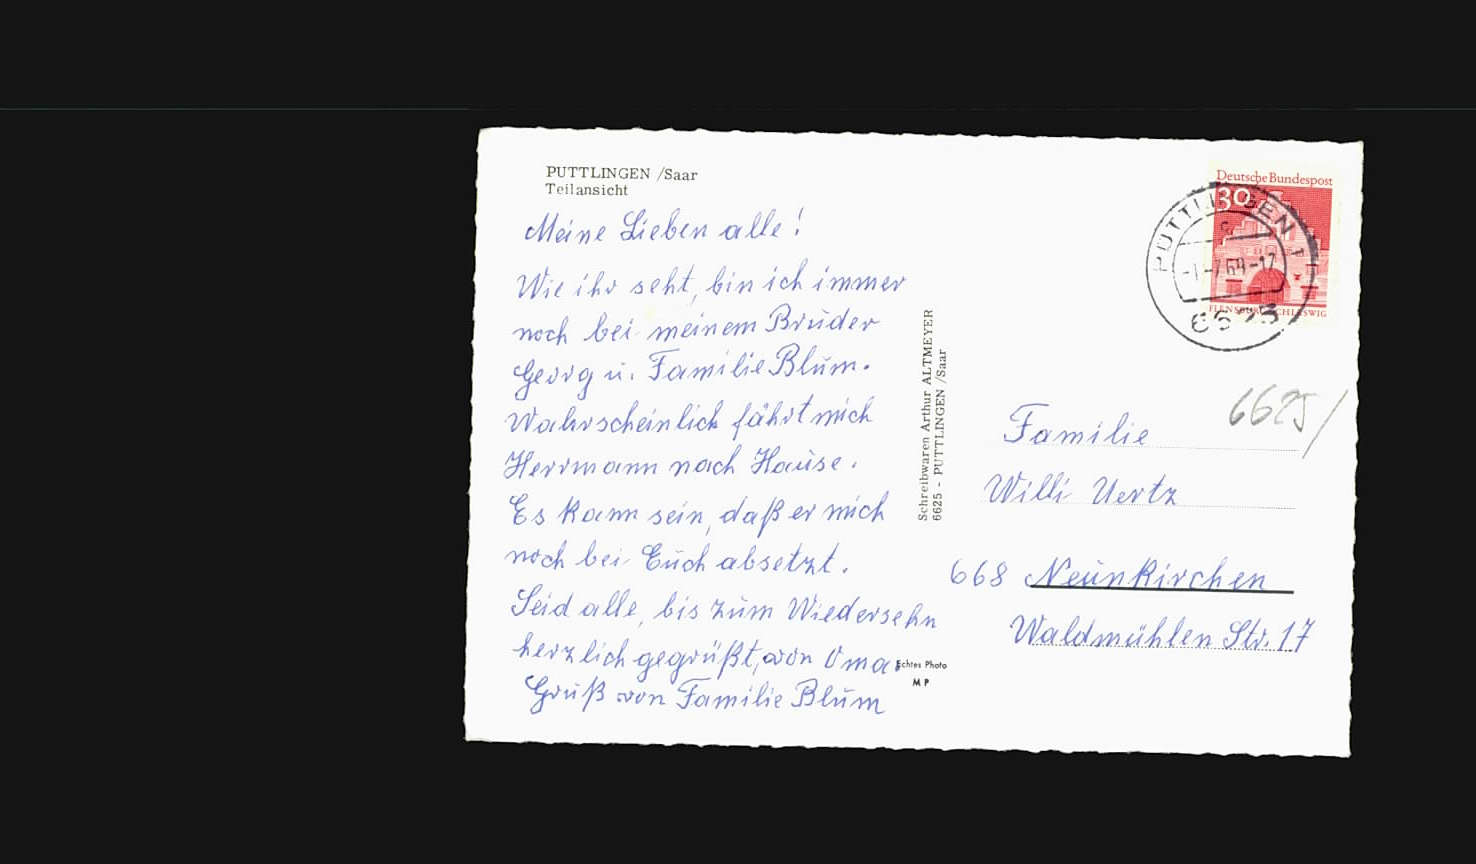 PUTTLINGEN /Saar
Teilansicht
Meine Lieben alle!
Wie ihr seht, bin ich immer
noch bei meinem Bruder
Georg u. Familie Blum.
Wahrscheinlich fährt mich
Herrmann nach Hause.
Es kann sein, daß er mich
noch bei Euch absetzt.
Seid alle, bis zum Wiedersehn
herzlich gegrüßt, von Oma.
Gruß von Familie Blum
Schreibwaren Arthur ALTMEYER
6625 - PUTTLINGEN /Saar
Echtes Photo
MP
Deutsche Bundespost
30
FLENSBURG SCHLESWIG
PÜTTLINGEN 1
6625
6625/
Familie
Willi Uertz
668 Neunkirchen
Waldmühlen Str. 17